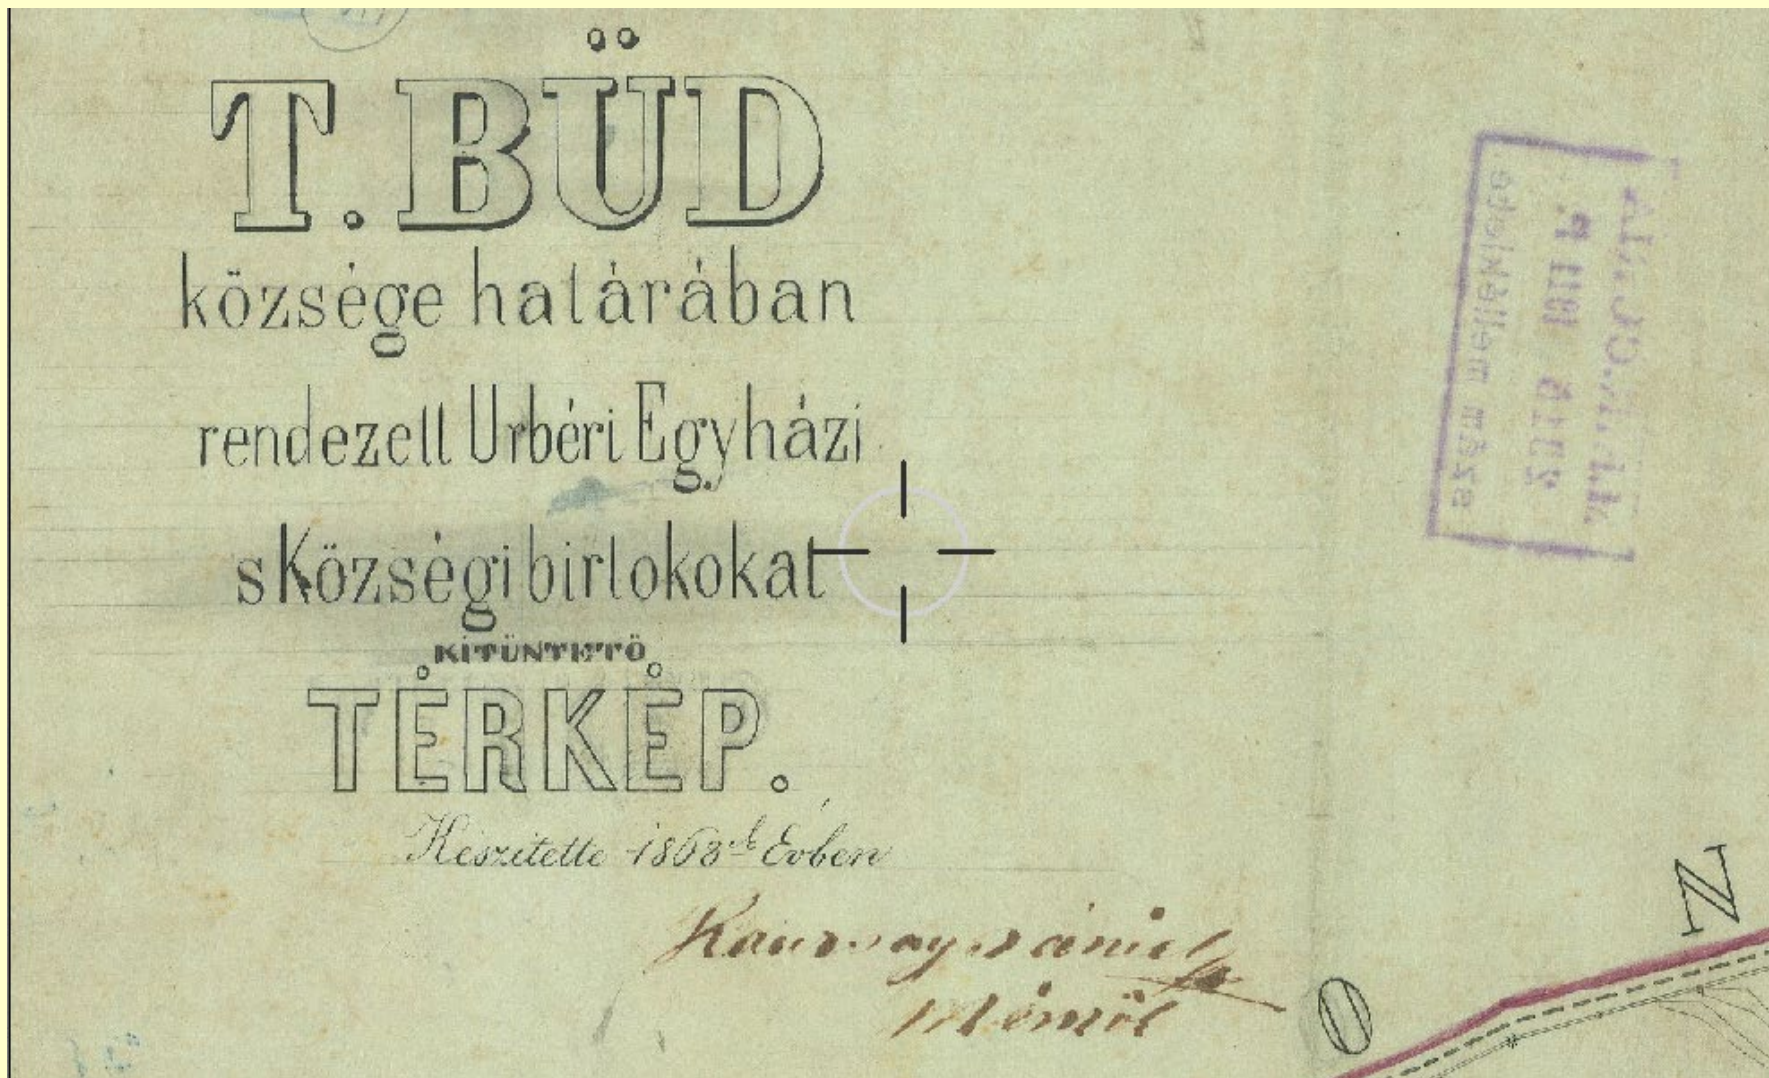 T. BÜD
községe határában
rendezett Urbéri Egyházi
s Községi birtokokat
KITÜNTETŐ
TÉRKÉP.
Készitette 1868ik Évben
Dániel
Mérnök
számm melléklete
N
O